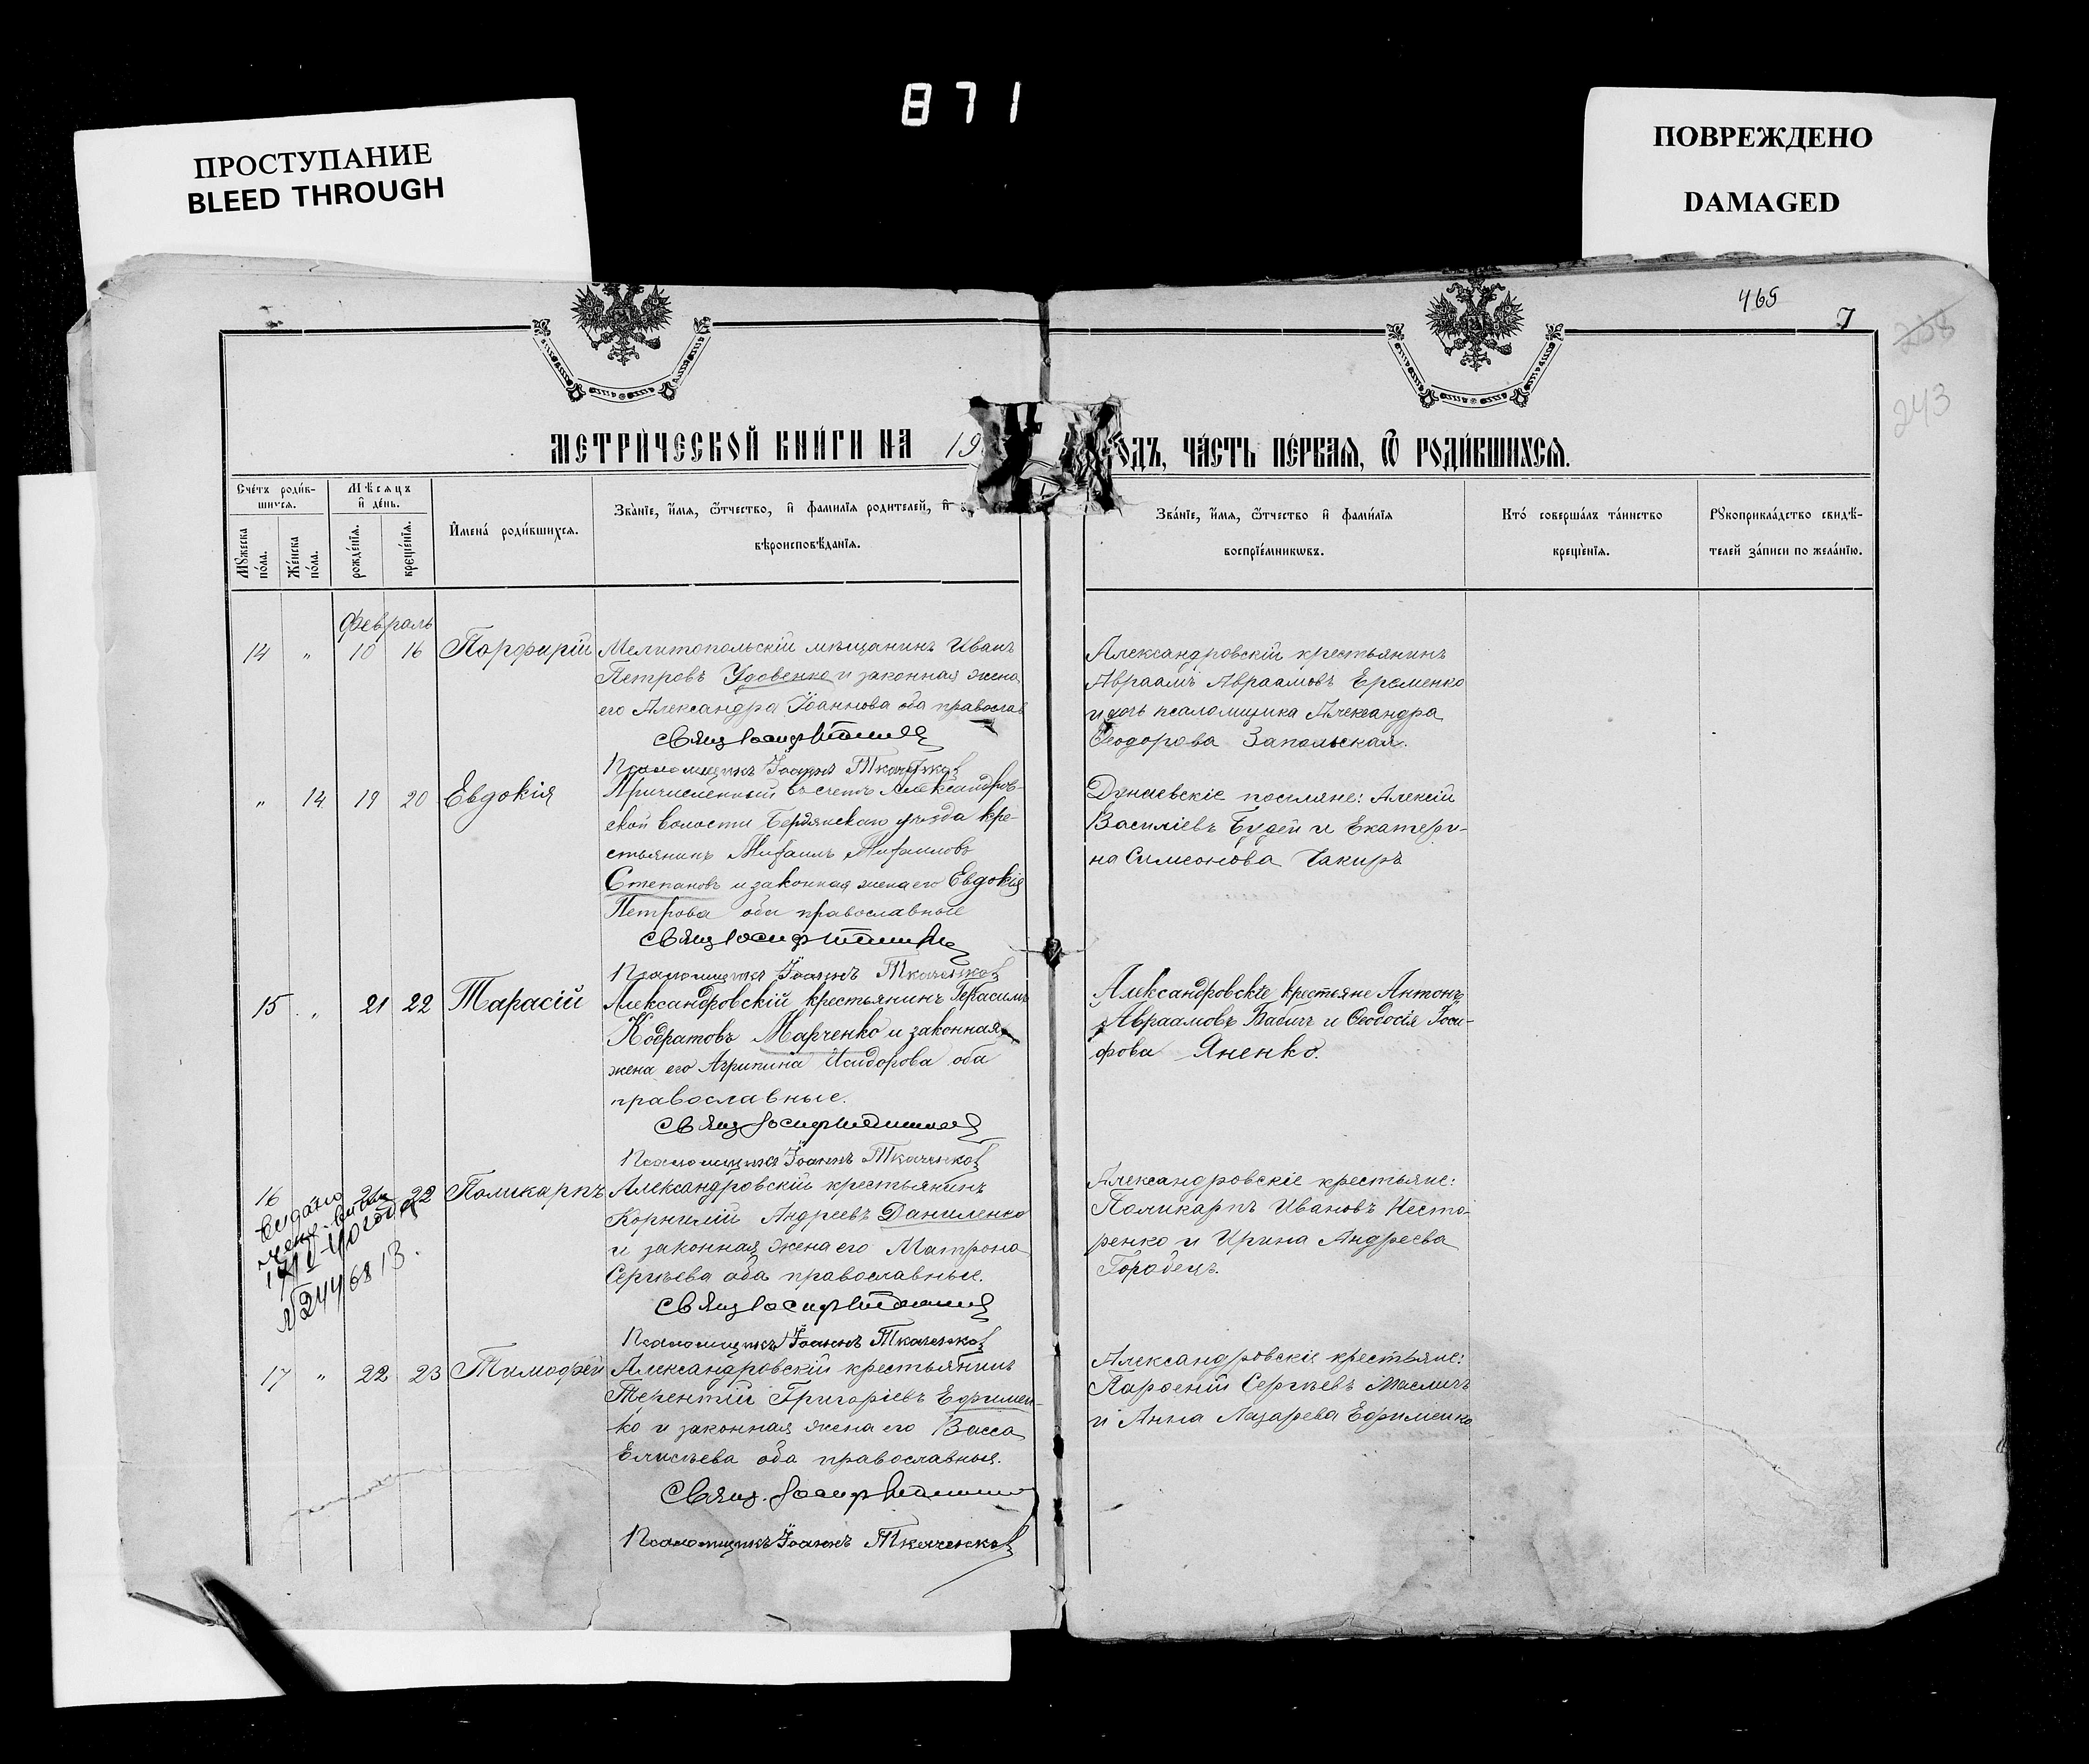 871
ПРОСТУПАНИЕ
BLEED THROUGH
ПОВРЕЖДЕНО
DAMAGED
465
7
238
243
МЕТРИ́ЧЕСКОЙ КНИ́ГИ НА 19
ОДЪ, ЧА́СТЬ ПЕ́РВАѦ, Ѿ РОДИ́ВШИХСѦ.
Сче́тъ роди́в-
шихсѧ.
Мѣ́сѧцъ
и҆ де́нь.
Мꙋ́жеска
по́ла.
Же́нска
по́ла.
рожде́нїѧ.
креще́нїѧ.
И҆мена̀ роди́вшихсѧ.
Зва́нїе, и҆́мѧ, ѻ҆́тчество, и҆ фами́лїѧ роди́телей, и҆
вѣроисповѣ́данїѧ.
Зва́нїе, и҆́мѧ, ѻ҆́тчество и҆ фами́лїѧ
воспрїе́мникѡвъ.
Кто́ соверша́лъ та́инство
креще́нїѧ.
Рꙋкоприкла́дство свидѣ́-
телей за́писи по жела́нїю.
Февраль
14 " 10 16 Порфирій
Мелитопольскій мѣщанинъ Иванъ
Петровъ Удовенко и законная жена
его Александра Іоаннова оба православ
Свящ Іосифъ
Псаломщикъ Іоаннъ Ткаченков
Александровскій крестьянинъ
Авраамъ Авраамовъ Еременко
и дочь псаломщика Александра
Ѳеодорова Запольская.
" 14 19 20 Евдокія
Причисленный въ счетъ Александров-
ской волости Бердянскаго уѣзда кре-
стьянинъ Михаилъ Михаиловъ
Степановъ и законная жена его Евдокія
Петрова оба православные
Свящ Іосифъ
Псаломщикъ Іоаннъ Ткаченков
Дунаевскіе поселяне: Алексій
Василіевъ Будей и Екатери-
на Симеонова Чакиръ
15 " 21 22 Тарасій
Александровскій крестьянинъ Герасимъ
Кодратовъ Марченко и законная
жена его Агрипина Исидорова оба
православные.
Свящ Іосифъ
Псаломщикъ Іоаннъ Ткаченков
Александровскіе крестьяне Антонъ
Авраамовъ Бабичъ и Ѳеодосія Іоси-
фова Яненко.
16 21 22 Поликарпъ
Выдано
№ 244681
Александровскій крестьянинъ
Корнилій Андреевъ Даниленко
и законная жена его Матрона
Сергѣева оба православные.
Свящ Іосифъ
Псаломщикъ Іоаннъ Ткаченков
Александровскіе крестьяне:
Поликарпъ Ивановъ Несто-
ренко и Ирина Андреева
Горобецъ.
17 " 22 23 Тимоѳей
Александровскій крестьянинъ
Терентій Григоріевъ Ефимен-
ко и законная жена его Васса
Елисѣева оба православные.
Свящ. Іосифъ
Псаломщикъ Іоаннъ Ткаченков
Александровскіе крестьяне:
Парѳеній Сергѣевъ Масличъ
и Анна Лазарева Ефименко